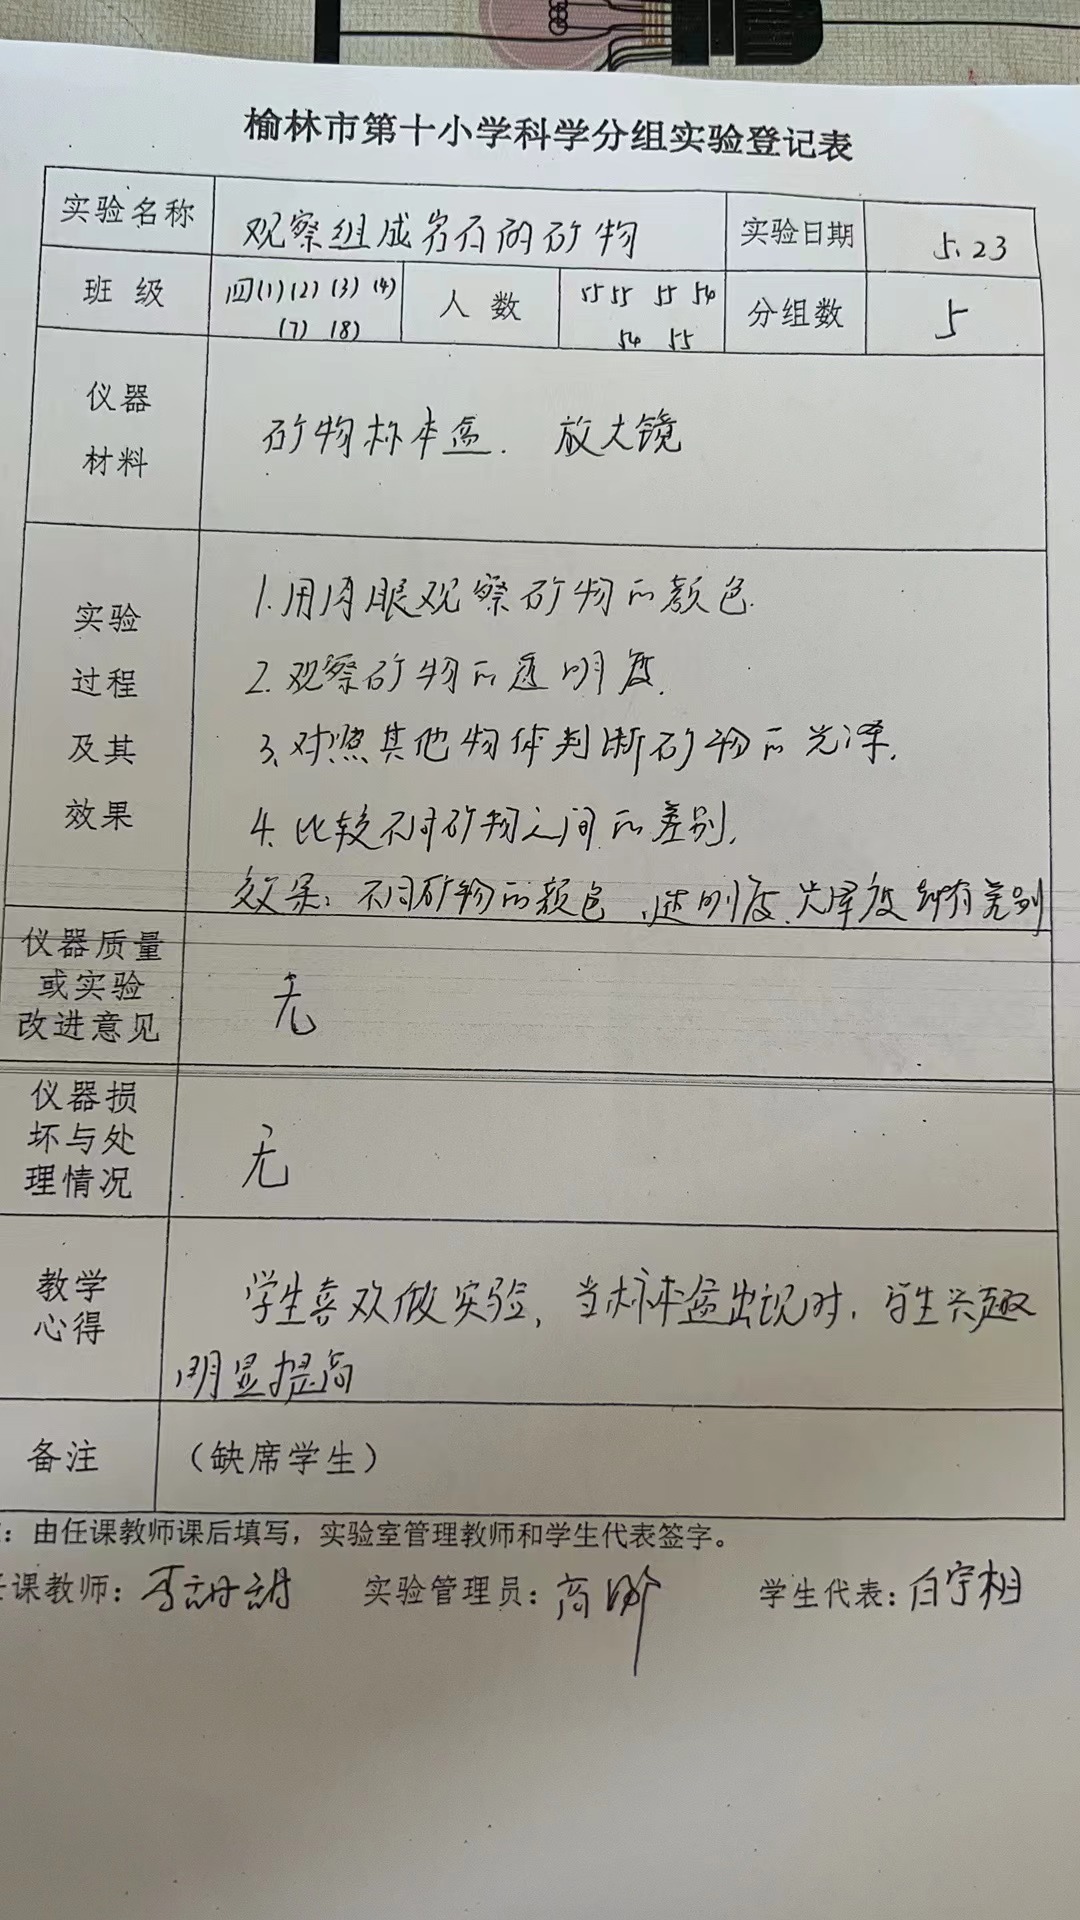 榆林市第十小学科学分组实验登记表
实验名称 观察组成岩石的矿物 实验日期 5.23
班级 四(1)(2)(3)(4) 人数 55 55 55 54 分组数 5
(7) (8) 54 55
仪器
材料
矿物标本盒. 放大镜
实验
过程
及其
效果
1.用肉眼观察矿物的颜色.
2.观察矿物的透明度.
3.对照其他物体判断矿物的光泽.
4.比较不同矿物之间的差别.
效果：不同矿物的颜色、透明度、光泽度都有差别
仪器质量
或实验
改进意见
无
仪器损
坏与处
理情况
无
教学
心得
学生喜欢做实验，当标本盒出现时，学生兴趣
明显提高
备注 （缺席学生）
：由任课教师课后填写，实验室管理教师和学生代表签字。
任课教师： 实验管理员： 学生代表：白宇相